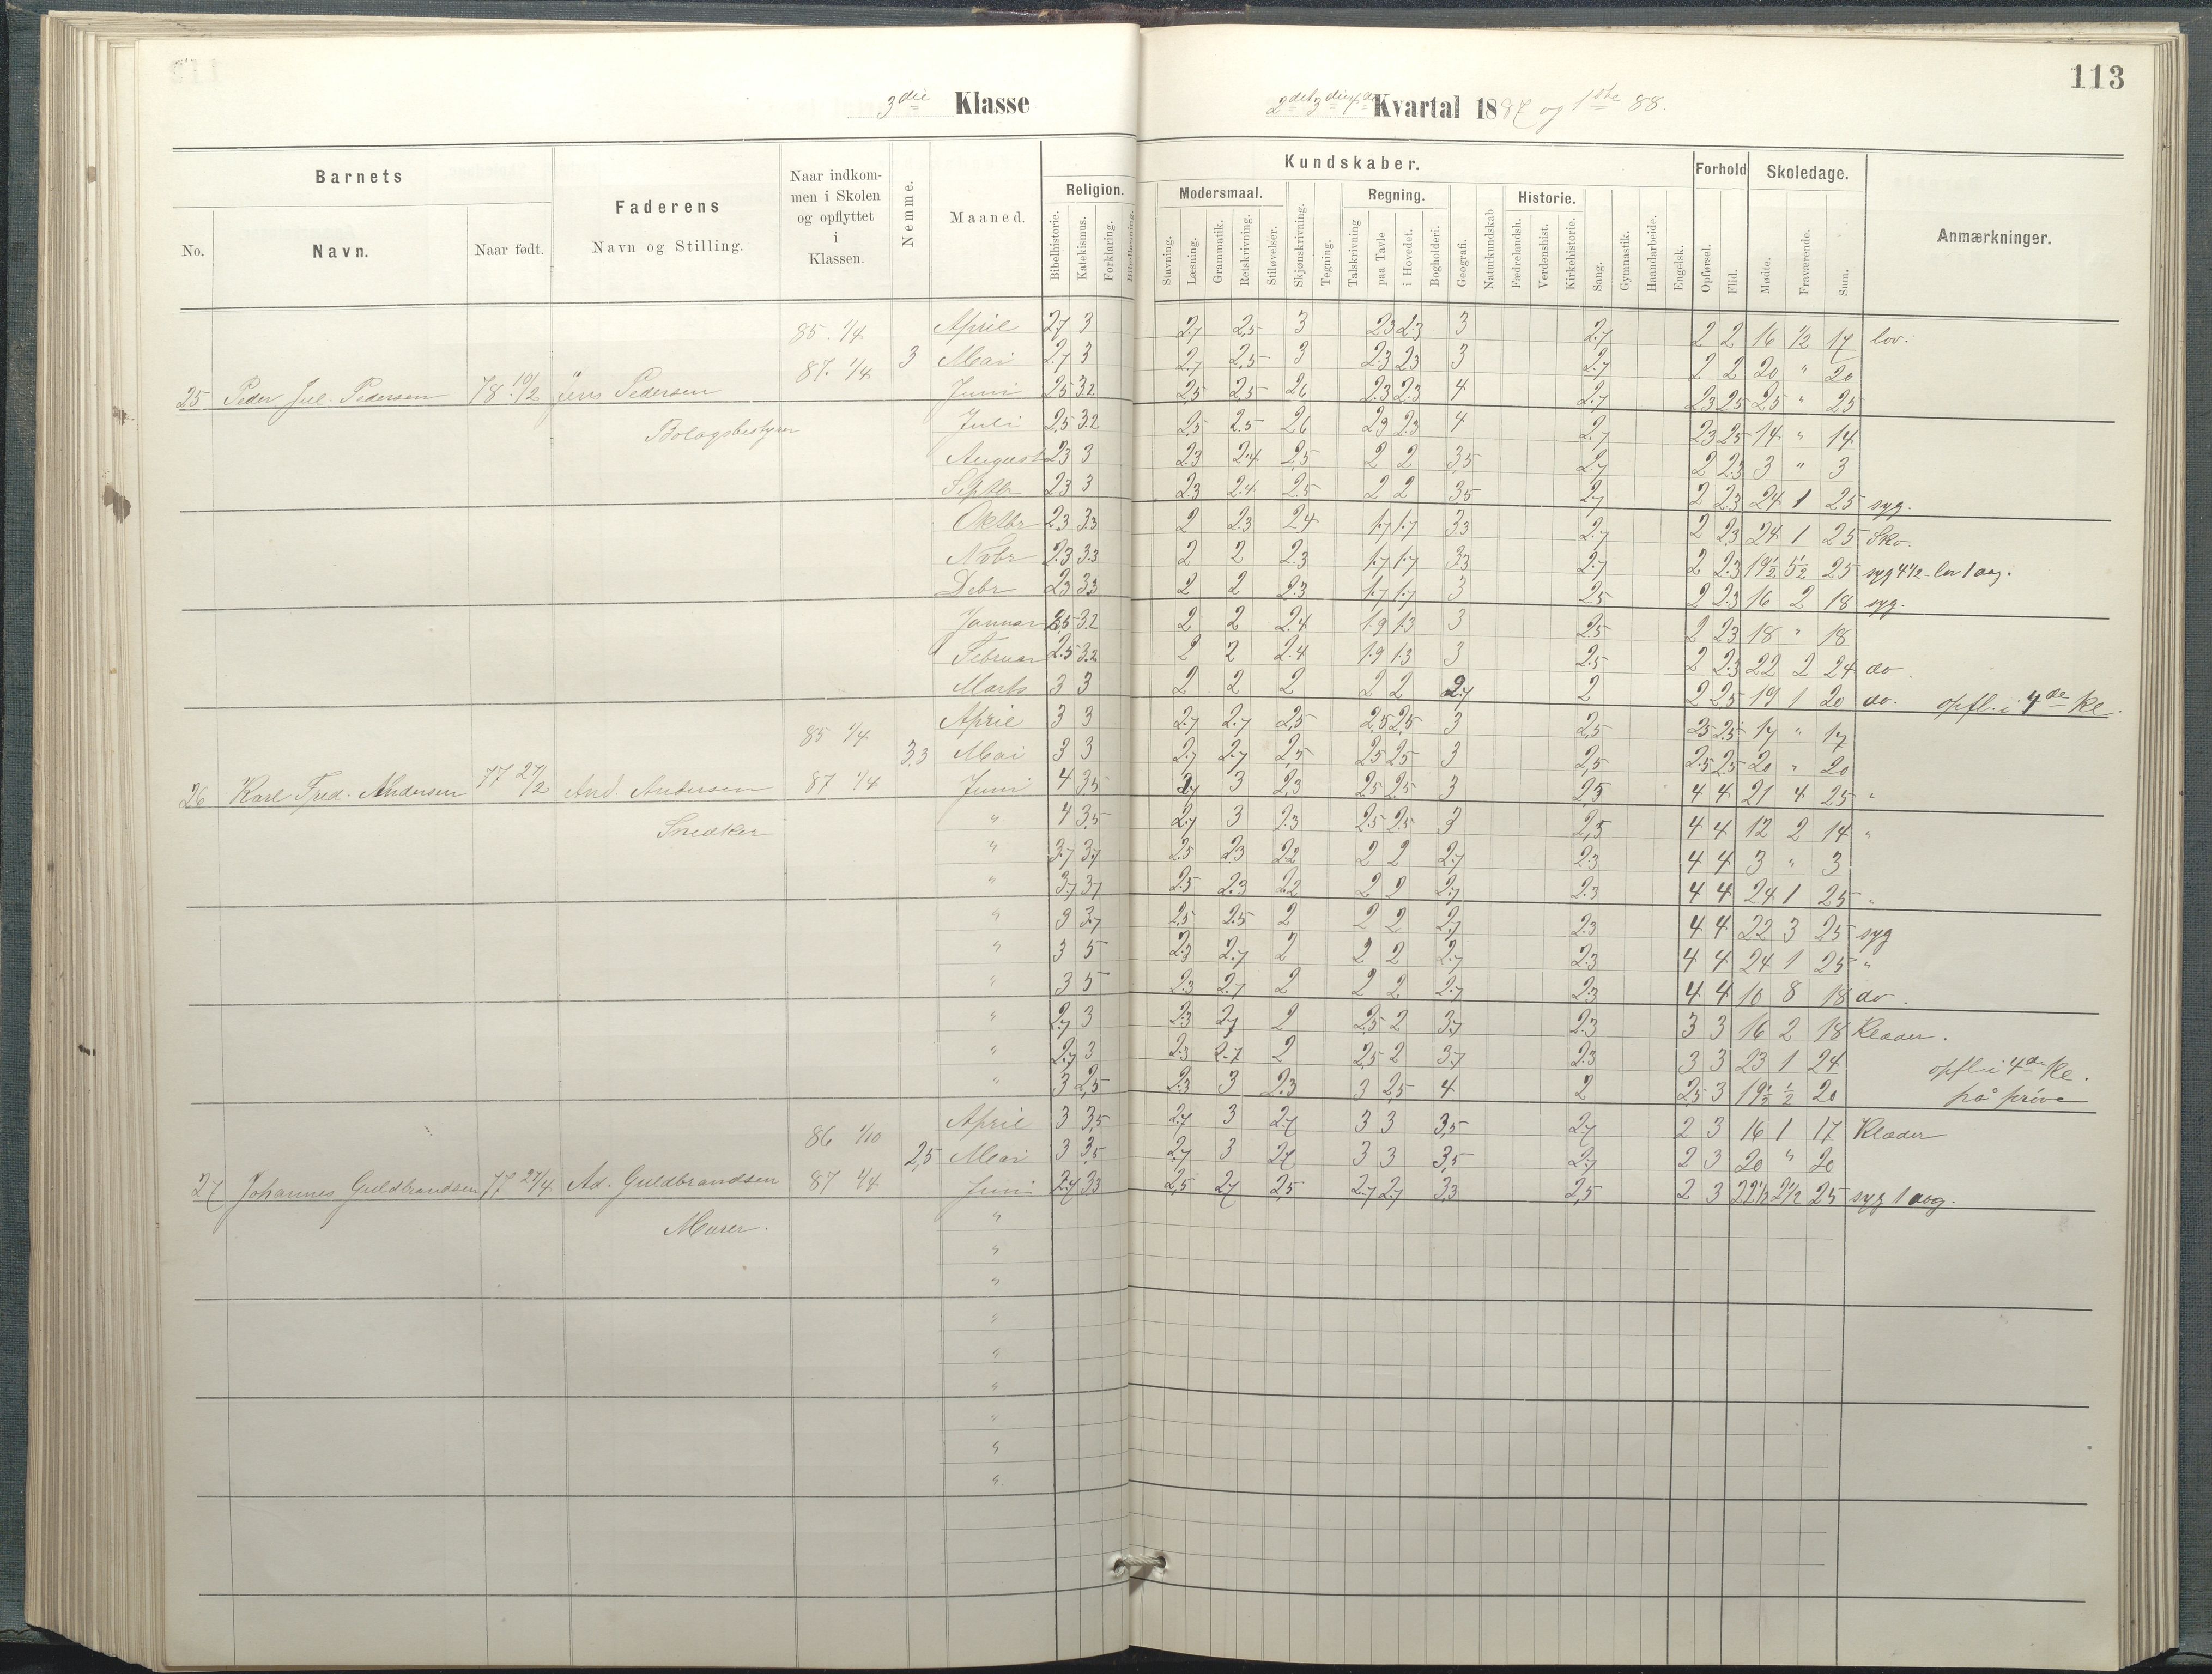 113
3die Klasse
2det, 3die, 4de Kvartal 1887 og 1ste 88.
Barnets
Faderens
Naar indkommen i Skolen og opflyttet i Klassen.
Nemme.
Maaned.
Kundskaber.
Forhold
Skoledage.
Anmærkninger.
Religion. Modersmaal. Skjønskrivning. Tegning. Regning. Geografi. Naturkundskab Historie. Sang. Gymnastik. Haandarbeide. Engelsk.
No. Navn. Naar født. Navn og Stilling.
Bibelhistorie. Katekismus. Forklaring. Bibellæsning. Stavning. Læsning. Grammatik. Retskrivning. Stiløvelser. Talskrivning paa Tavle i Hovedet. Bogholderi. Fædrelandsh. Verdenshist. Kirkehistorie. Opførsel. Flid. Mødte. Fraværende. Sum.
85. 1/4 April 2.7 3 2.7 2,5 3 2.3 2.3 3 2.7 2 2 16 1/2 17 lov.
3 Mai 2.7 3 2.7 2,5 3 2.3 2.3 3 2.7 2 2 20 " 20
87. 1/4
25 Peder Jul. Pedersen 78 10/2 Jens Pedersen Juni 2.5 3.2 2,5 2,5 2.6 2.3 2.3 4 2.7 2.3 2.5 25 " 25
Bolagsbestyrer Juli 2,5 3.2 2,5 2.5 2.6 2.3 2.3 4 2.7 2.3 2.5 14 " 14
August 2.3 3 2.3 2.4 2,5 2 2 3,5 2.7 2 2.3 3 " 3
Septbr 2.3 3 2.3 2.4 2.5 2 2 3.5 2.7 2 2.3 24 1 25 syg.
Oktbr 2.3 3.3 2 2.3 2.4 1.7 1.7 3.3 2.7 2 2.3 24 1 25 Sko.
Novbr 2.3 3.3 2 2 2.3 1.7 1.7 3.3 2.7 2 2.3 19 1/2 5 1/2 25 syg 4 1/2 - lov 1 dag.
Debr 2.3 3.3 2 2 2.3 1.7 1.7 3 2.5 2 2.3 16 2 18 syg.
Januar 2.5 3.2 2 2 2.4 1.9 1.3 3 2.5 2 2.3 18 " 18
Februar 2.5 3.2 2 2 2.4 1.9 1.3 3 2.5 2 2.3 22 2 24 do
Marts 3 3 2 2 2 2 2 2.7 2 2 2.5 19 1 20 do. opfl. i 4de Kl.
85 1/4 April 3 3 2.7 2.7 2,5 2,5 2,5 3 2,5 2.5 2.5 17 " 17
3.3 Mai 3 3 2.7 2.7 2,5 2.5 2.5 3 2,5 2.5 2.5 20 " 20
26 Karl Fred. Andersen 77 27/2 And. Andersen 87 1/4 Juni 4 3.5 2.7 3 2.3 2.5 2.5 3 2.5 4 4 21 4 25 "
Snedker " 4 3.5 2.7 3 2.3 2.5 2.5 3 2,5 4 4 12 2 14 "
" 3.7 3.7 2.5 2.3 2.2 2 2 2.7 2.3 4 4 3 " 3
" 3.7 3.7 2.5 2.3 2.2 2 2 2.7 2.3 4 4 24 1 25 "
" 3 3.7 2.5 2.5 2 2 2 2.7 2.3 4 4 22 3 25 syg
" 3 5 2.3 2.7 2 2 2 2.7 2.3 4 4 24 1 25 "
" 3 5 2.3 2.7 2 2 2 2.7 2.3 4 4 10 8 18 do.
" 2.7 3 2.3 2.7 2 2.5 2 3.7 2.3 3 3 16 2 18 Klæder.
" 2.7 3 2.3 2.7 2 2.5 2 3.7 2.3 3 3 23 1 24 opfl. i 4de Kl.
" 3 2,5 2.3 3 2.3 3 2,5 4 2 2.5 3 19 1/2 1/2 20 på prøve
86 1/10 April 3 3,5 2.7 3 2.7 3 3 3,5 2.7 2 3 16 1 17 Klæder
2,5 Mai 3 3,5 2.7 3 2.7 3 3 3,5 2.7 2 3 20 " 20
27 Johannes Guldbrandsen 77 27/4 Ad. Guldbrandsen 87 1/4 Juni 2.7 3.3 2,5 2.7 2,5 2.7 2.7 3.3 2,5 2 3 22 1/2 2 1/2 25 syg 1 dag.
Murer. "
"
"
"
"
"
"
"
"